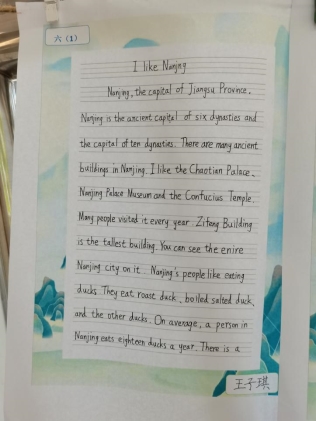 六(1)
I like Nanjing
Nanjing, the capital of Jiangsu Province.
Nanjing is the ancient capital of six dynasties and
the capital of ten dynasties. There are many ancient
buildings in Nanjing. I like the Chaotian Palace,
Nanjing Palace Museum and the Confucius Temple.
Many people visited it every year. Zifeng Building
is the tallest building. You can see the enire
Nanjing city on it. Nanjing's people like eating
ducks. They eat roast duck, boiled salted duck,
and the other ducks. On average, a person in
Nanjing eats eighteen ducks a year. There is a
王子琪